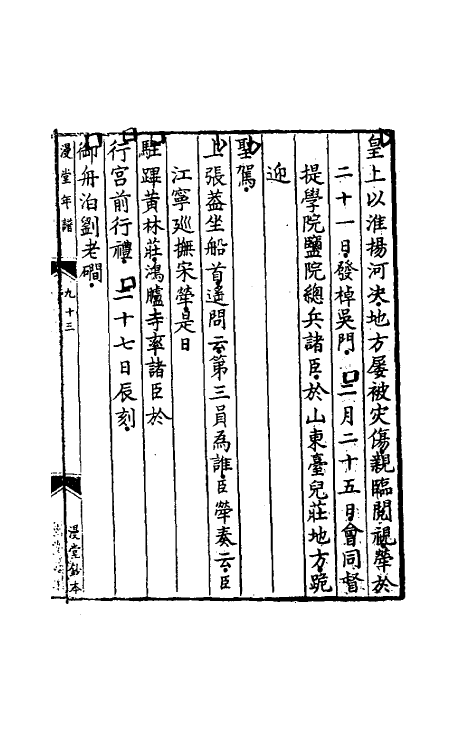 皇上以淮楊河決地方屢被灾傷親臨閱視犖於
二十一日發棹吳門二月二十五日會同督
提學院鹽院總兵諸臣於山東臺兒莊地方跪
迎
聖駕
上張葢坐船首遥問云第三員為誰臣犖奏云臣
江寧廵撫宋犖是日
駐蹕黃林莊鴻臚寺率諸臣於
行宫前行禮二十七日辰刻
御舟泊劉老磵
漫堂年譜
九十三
漫堂鈔本